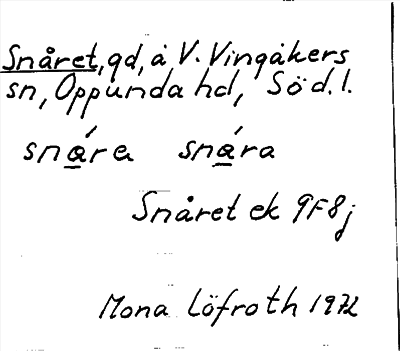 Snåret, gd, å V. Vingåkers
sn, Oppunda hd, Söd. l.
sná̲ra sná̲ra
Snåret ek 9F8j
Mona Löfroth 1972